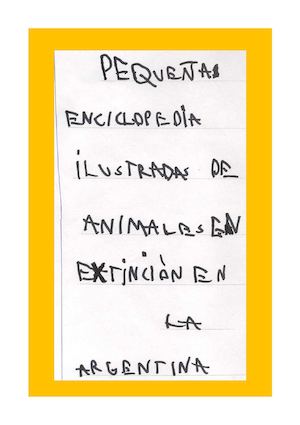 PEQUEÑAS
ENCICLOPEDIA
ILUSTRADAS DE
ANIMALES EN
EXTINCIÒN EN
LA
ARGENTINA